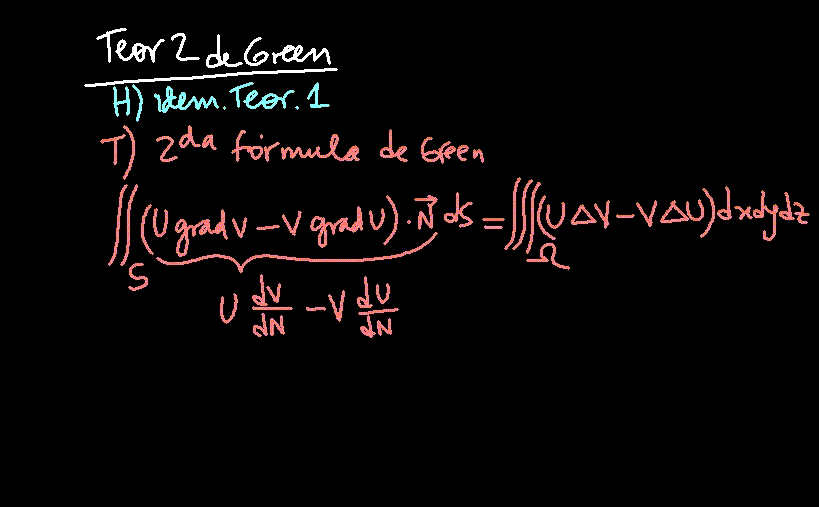 Teor 2 de Green
H) idem. Teor. 1
T) 2da fórmula de Green
∬S (U grad V − V grad U) · N⃗ dS = ∭Ω (U ΔV − V ΔU) dx dy dz
U dV/dN − V dU/dN